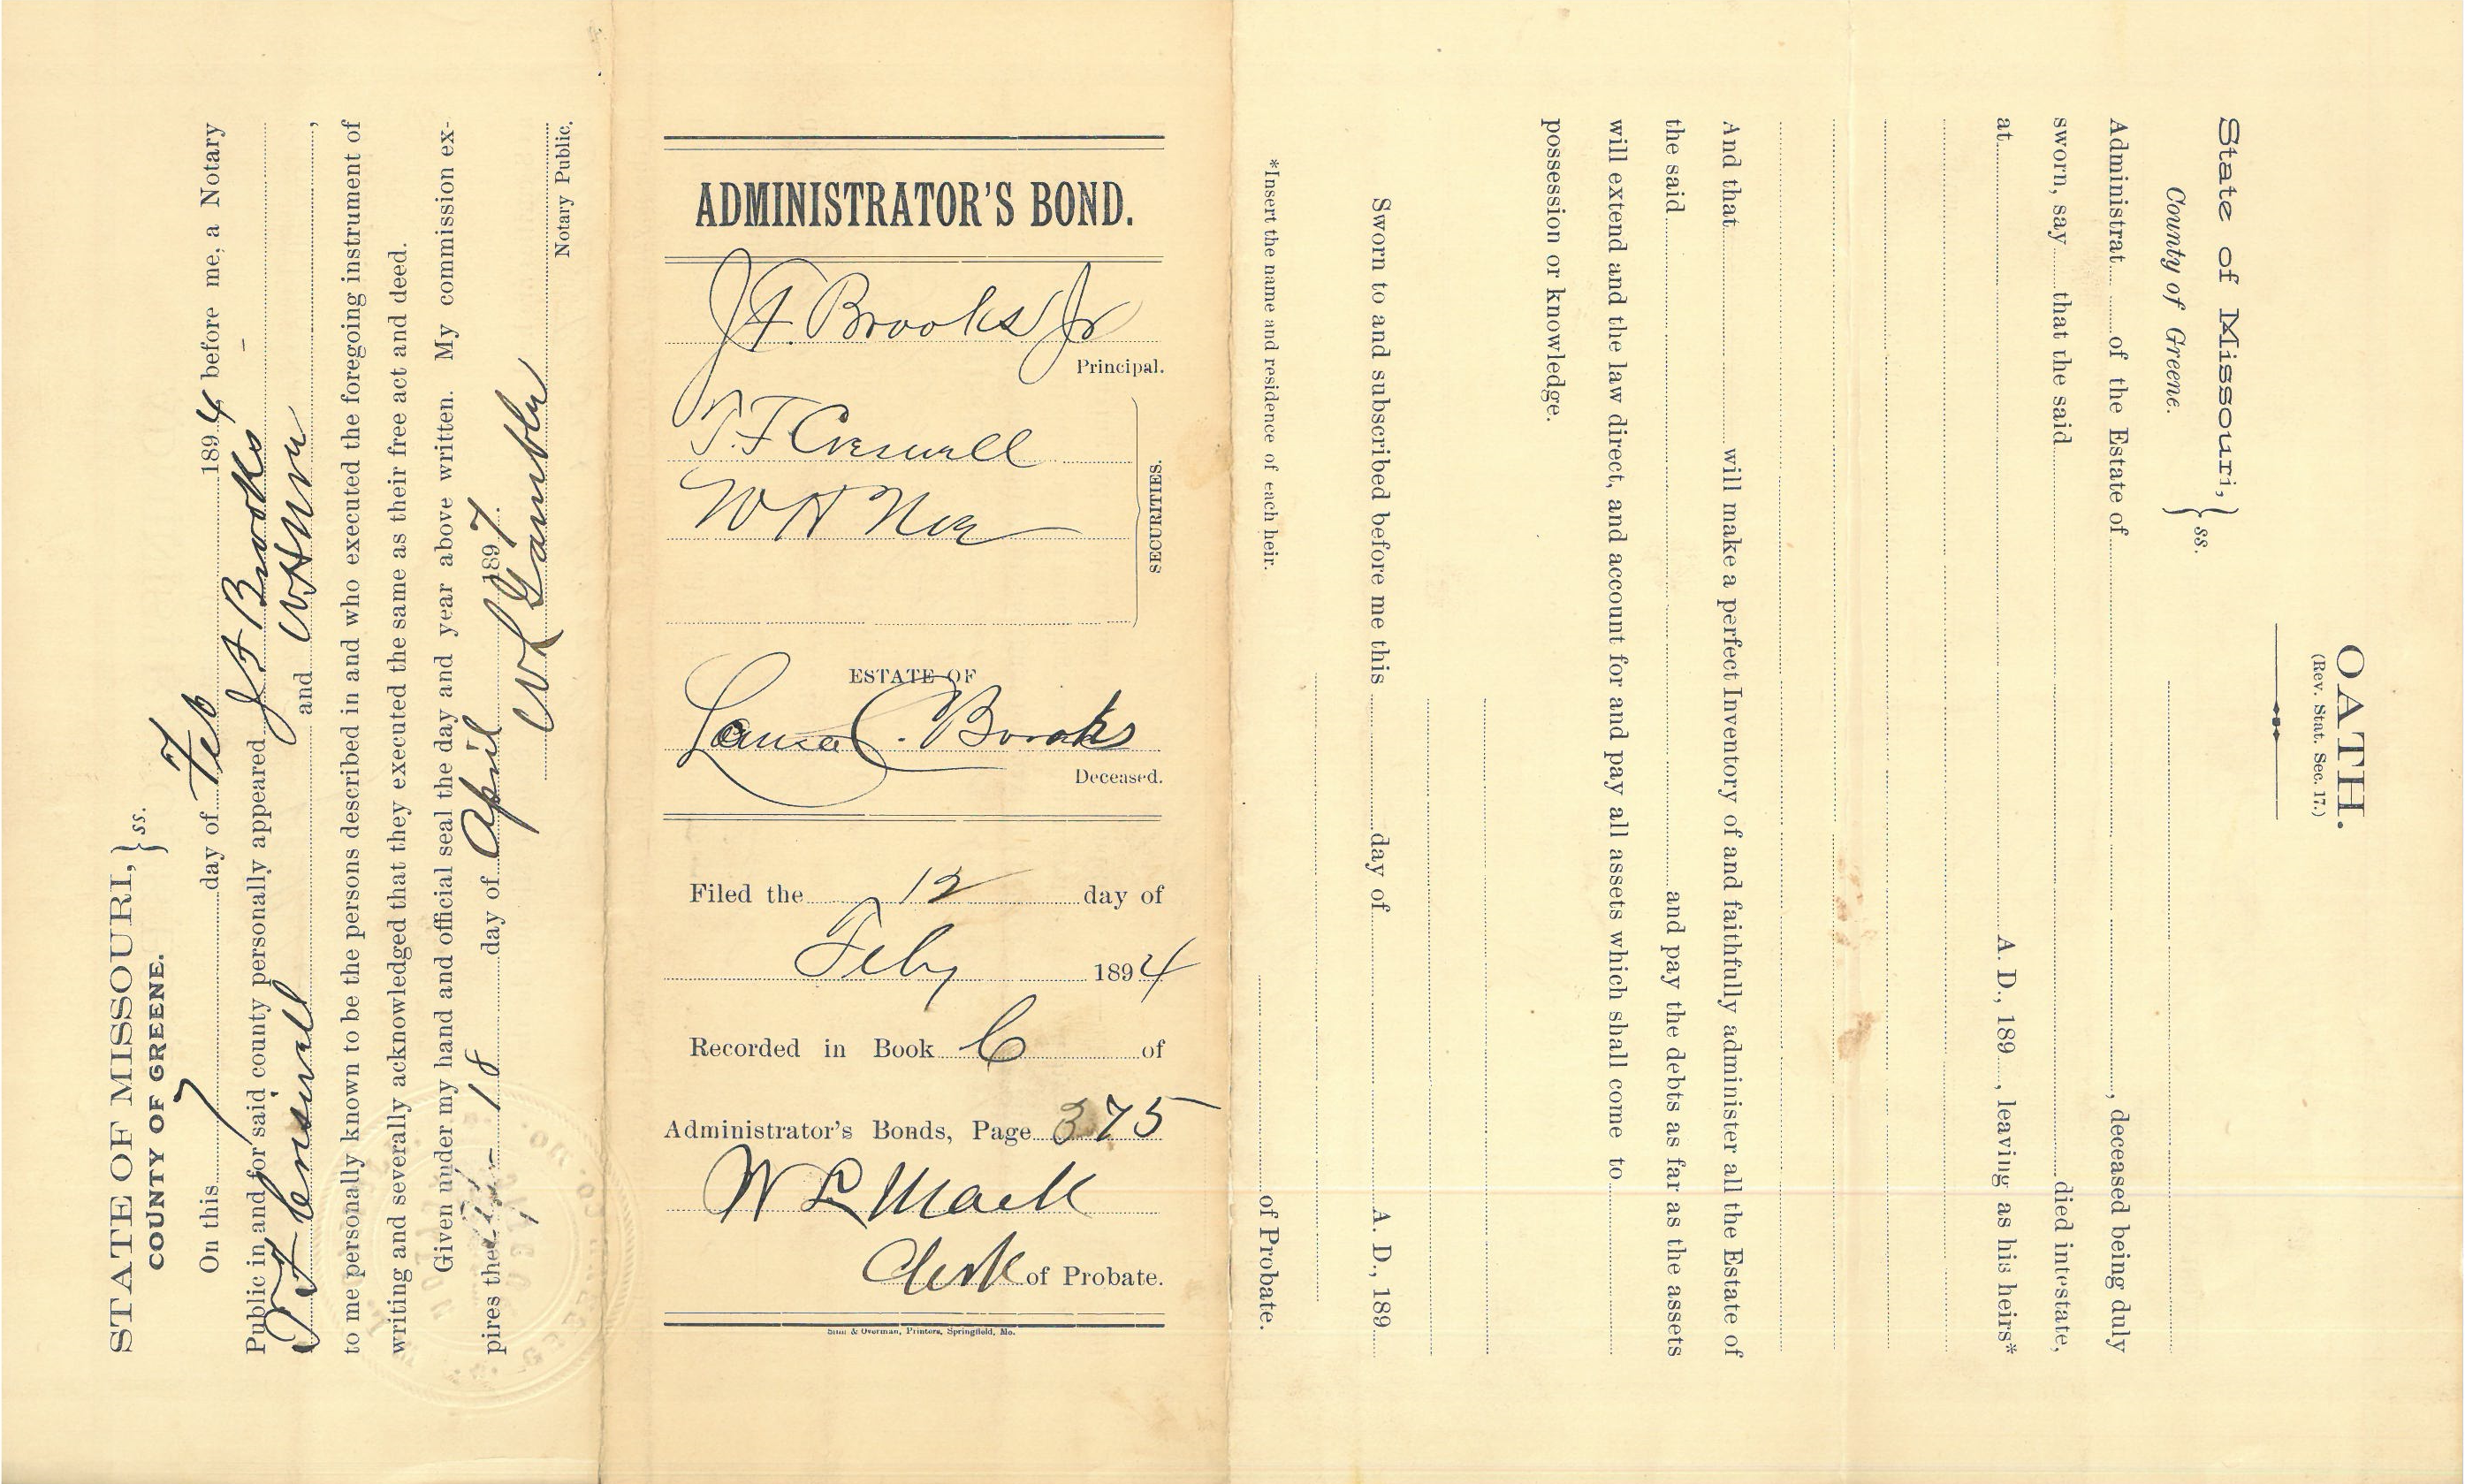 STATE OF MISSOURI, } ss.
COUNTY OF GREENE.
On this 7 day of Feb 1894 before me, a Notary
Public in and for said county personally appeared J F Brooks
T F Creswell and W H
to me personally known to be the persons described in and who executed the foregoing instrument of
writing and severally acknowledged that they executed the same as their free act and deed.
Given under my hand and official seal the day and year above written. My commission ex-
pires the 18 day of April 1897.
W L Gambler
Notary Public.
ADMINISTRATOR'S BOND.
J. F. Brooks Jr
Principal.
T. F Creswell
W H
SECURITIES.
ESTATE OF
Laura C. Brooks
Deceased.
Filed the 12 day of
Feby 1894
Recorded in Book C of
Administrator's Bonds, Page 375
W L Mack
Clerk of Probate.
& Overman, Printers, Springfield, Mo.
OATH.
(Rev. Stat. Sec. 17.)
State of Missouri, } ss.
County of Greene.
Administrat of the Estate of , deceased being duly
sworn, say that the said died intestate,
at A. D., 189 , leaving as his heirs*
And that will make a perfect Inventory of and faithfully administer all the Estate of
the said and pay the debts as far as the assets
will extend and the law direct, and account for and pay all assets which shall come to
possession or knowledge.
Sworn to and subscribed before me this day of A. D., 189
of Probate.
*Insert the name and residence of each heir.